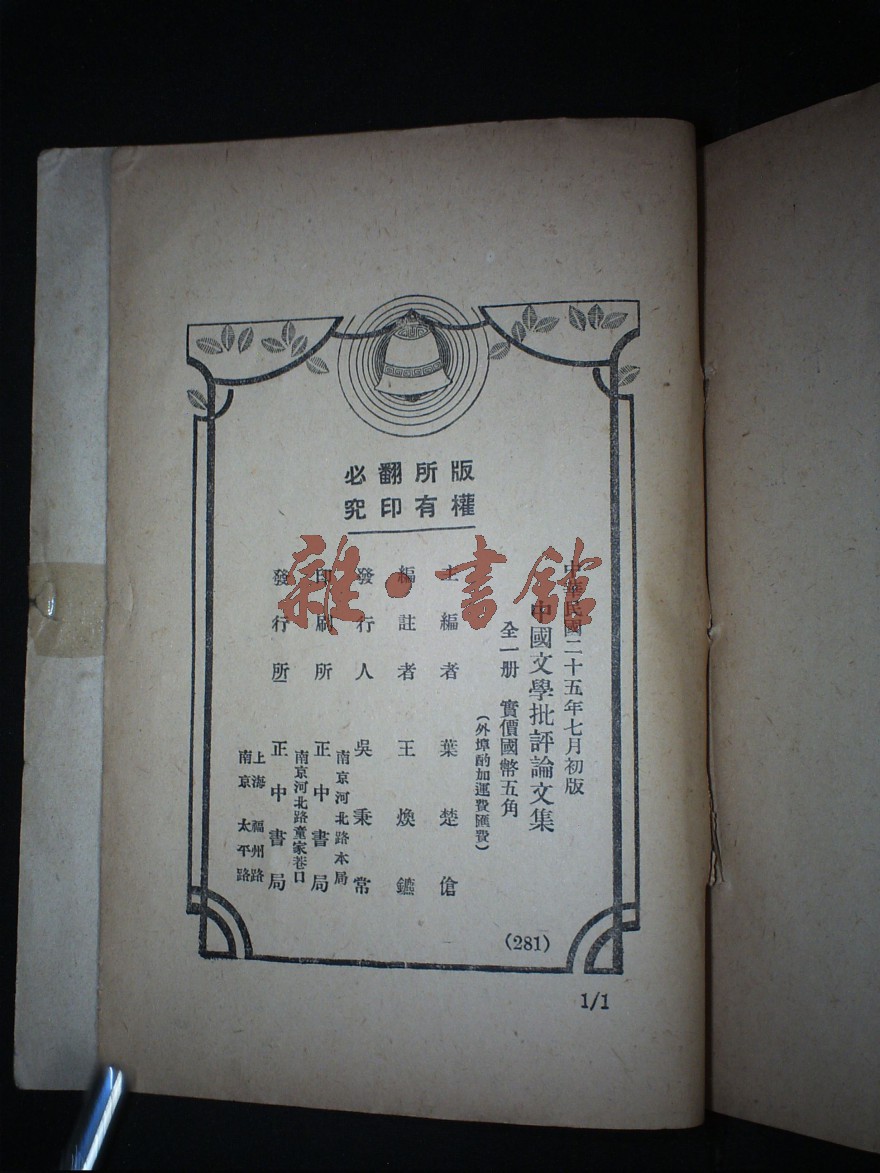 版權所有翻印必究
中華民國二十五年七月初版
中國文學批評論文集
全一册 實價國幣五角
(外埠酌加運費匯費)
主編者 葉楚傖
編註者 王煥鑣
發行人 吳秉常
南京河北路本局
印刷所 正中書局
南京河北路童家巷口
發行所 正中書局
上海福州路
南京太平路
(281)
1/1
雜·書館